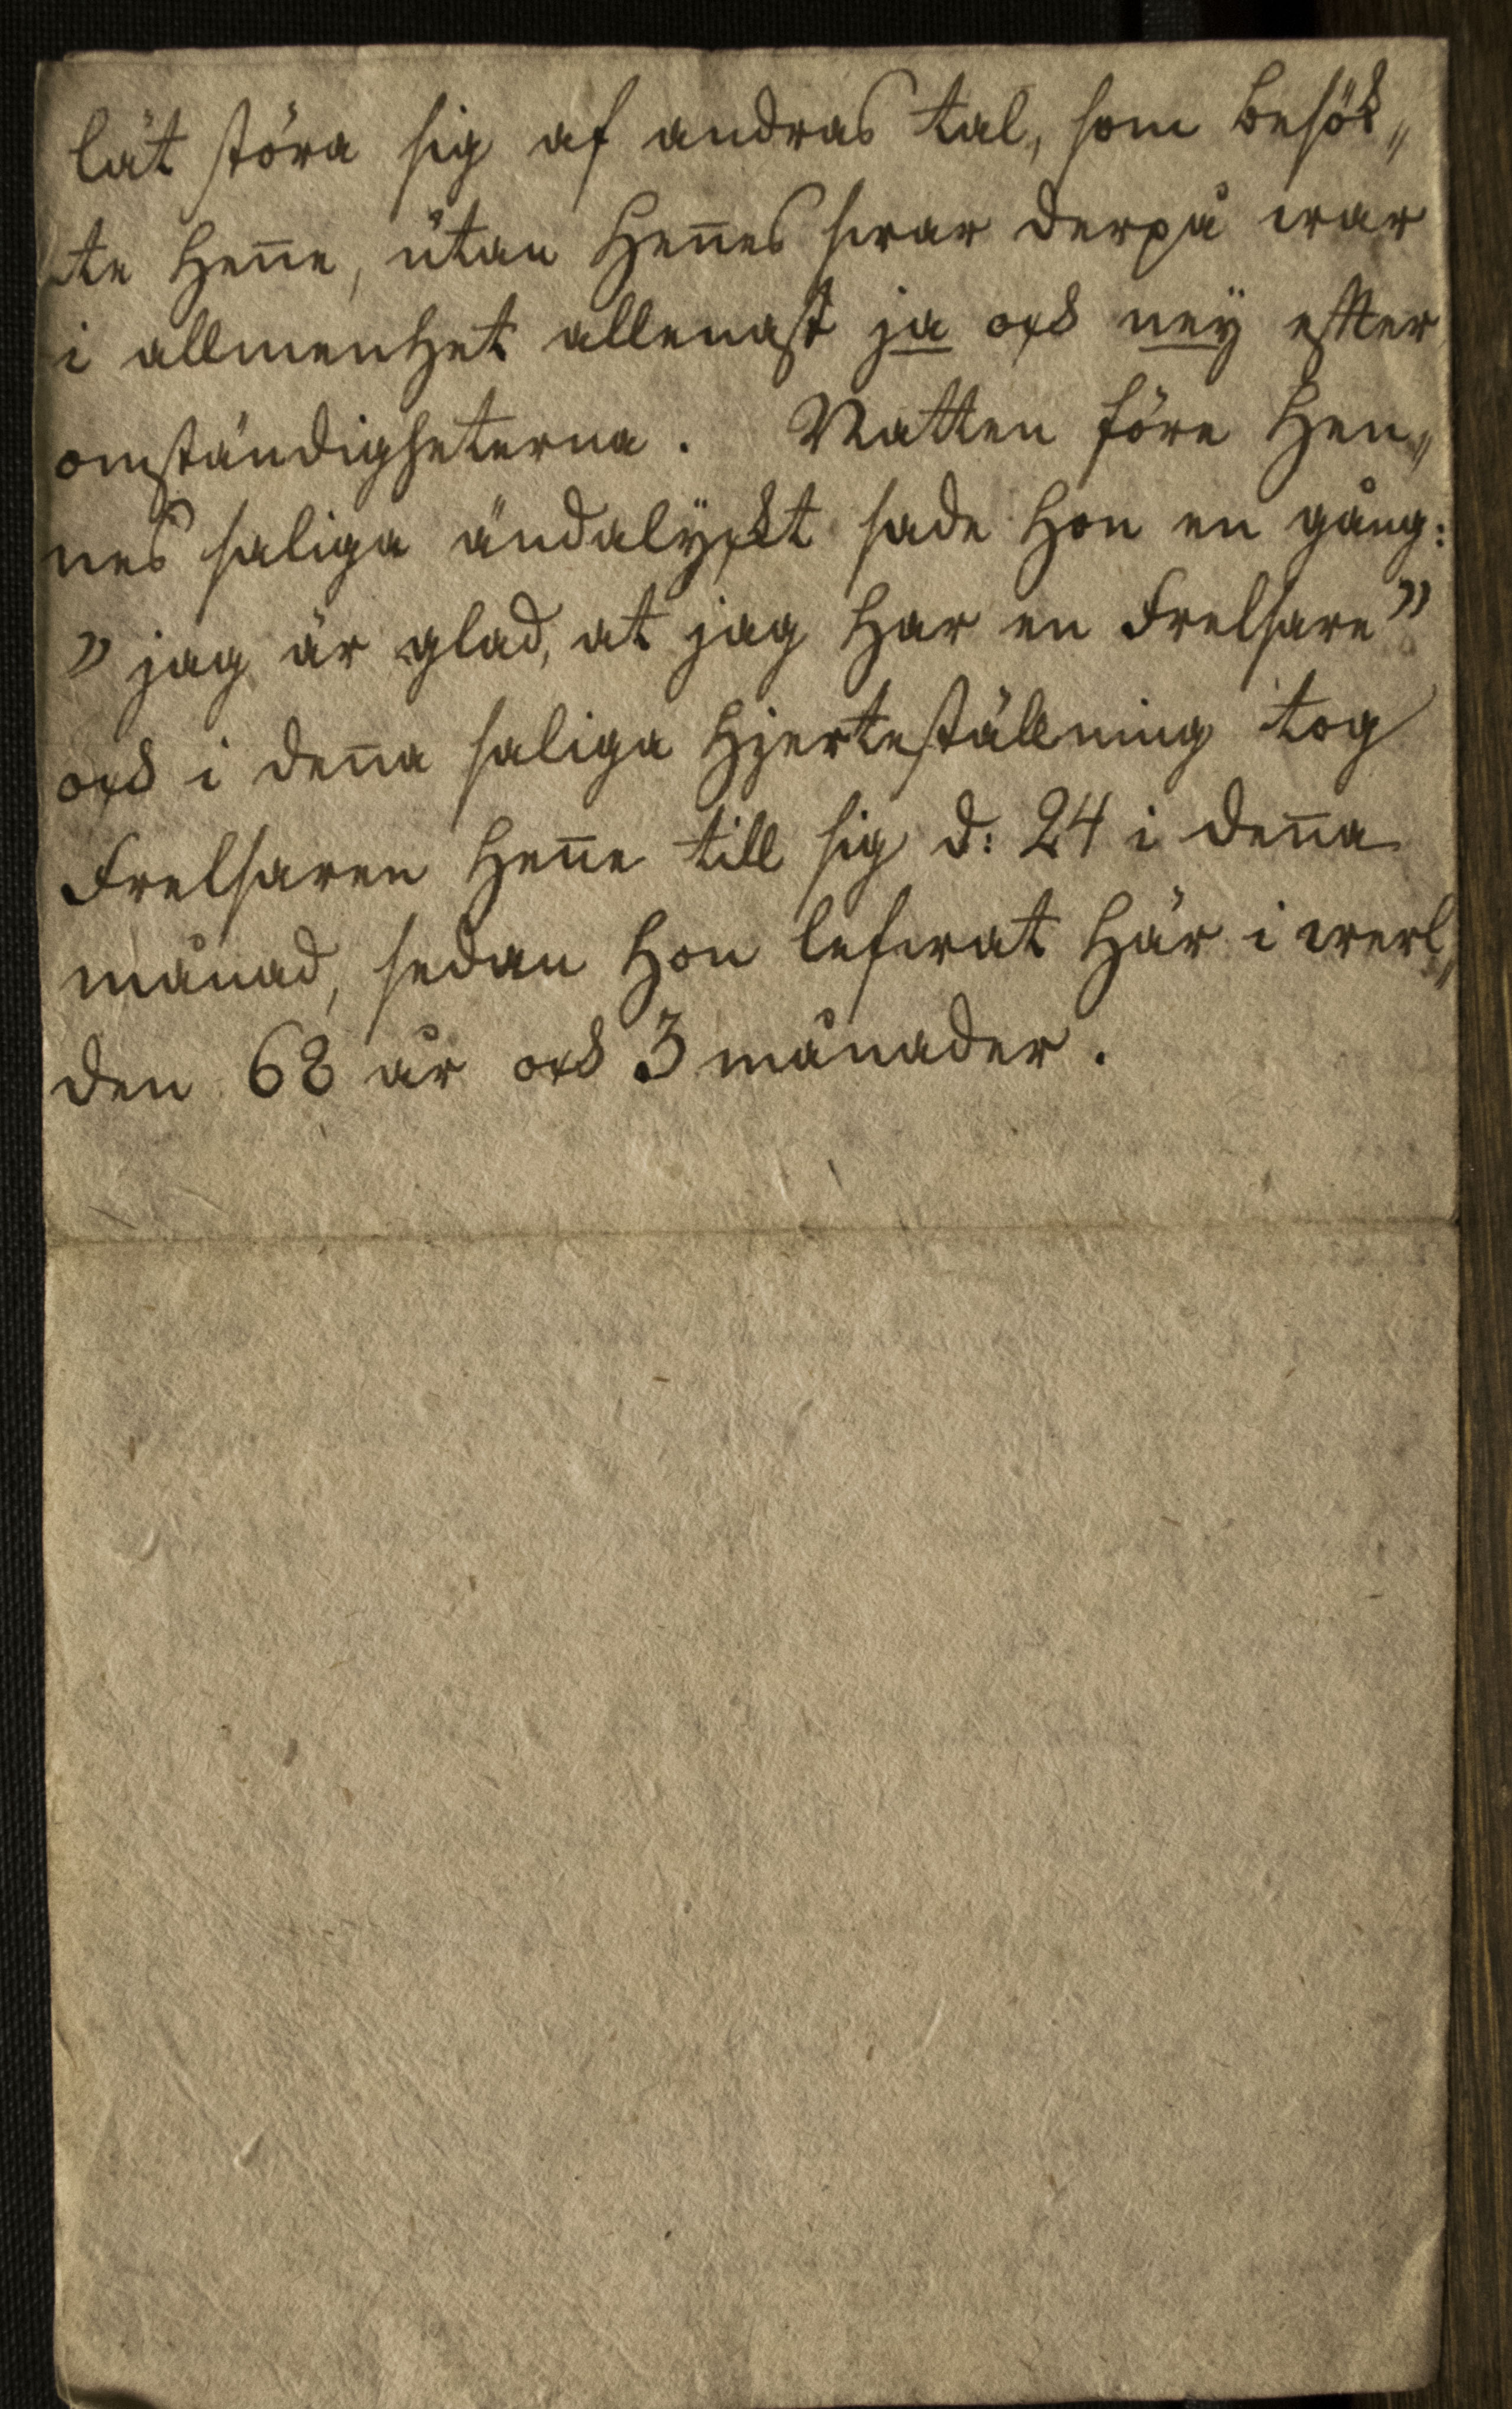 låt störa sig af andras tal, som besök„
te henne, utan hennes swar derpå war
i allmenhet allenast ja och ney efter
omständigheterna. Natten före hen„
nes saliga ändalyckt sade hon en gång:
” jag är glad, at jag har en Frelsare”
och i denna saliga hjerteställning tog
Frelsaren henne till sig d: 24 i denna
månad, sedan hon lefwat här i werl„
den 68 år och 3 månader.